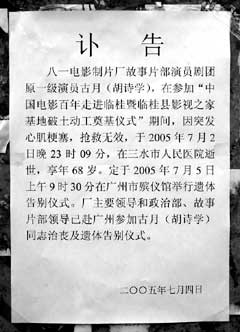 讣 告
八一电影制片厂故事片部演员剧团
原一级演员古月（胡诗学），在参加“中
国电影百年走进临桂暨临桂县影视之家
基地破土动工奠基仪式”期间，因突发
心肌梗塞，抢救无效，于 2005 年 7 月 2
日晚 23 时 09 分，在三水市人民医院逝
世，享年 68 岁。定于 2005 年 7 月 5 日
上午 9 时 30 分在广州市殡仪馆举行遗体
告别仪式。厂主要领导和政治部、故事
片部领导已赴广州参加古月（胡诗学）
同志治丧及遗体告别仪式。
二〇〇五年七月四日